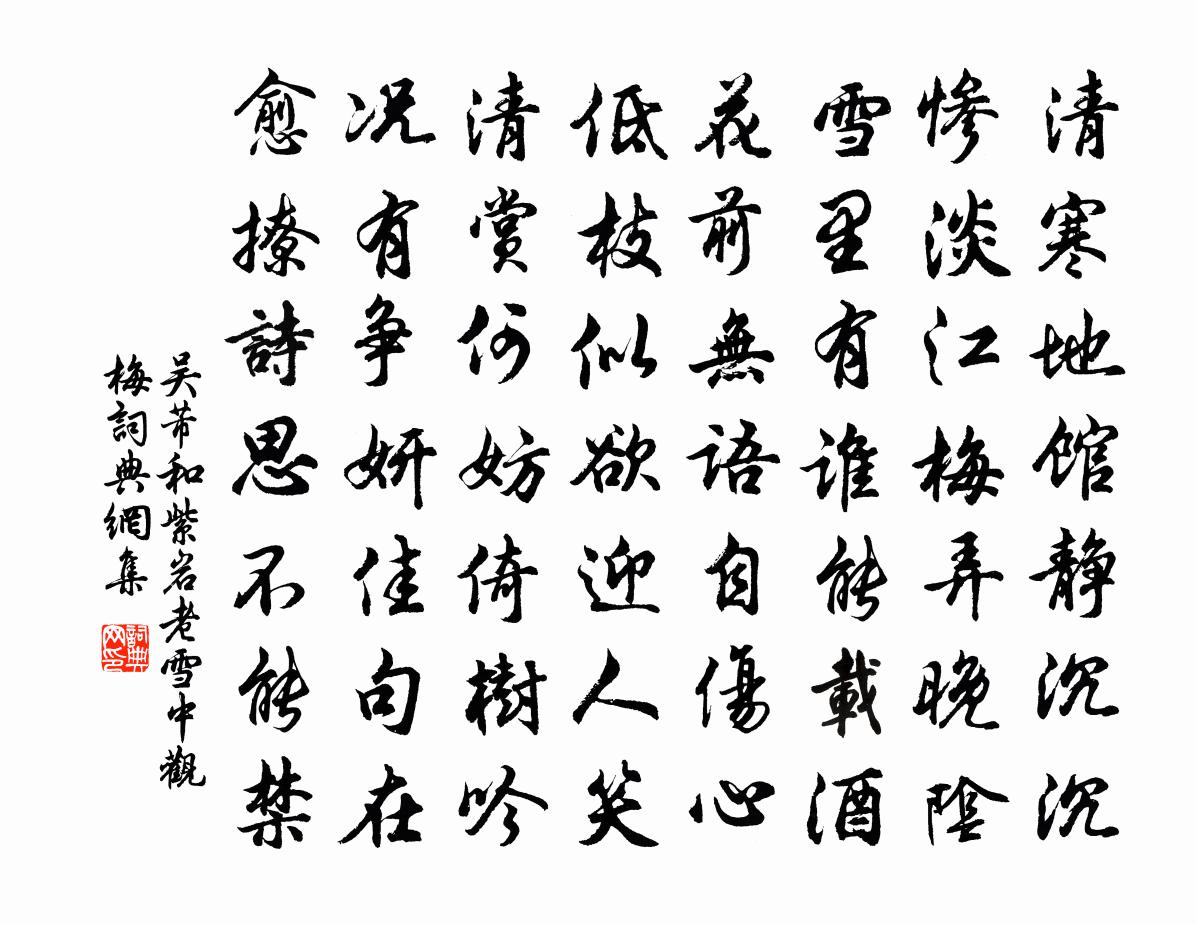 清寒地館静沉沉
慘淡江梅弄晚陰
雪里有誰能載酒
花前無語自傷心
低枝似欲迎人笑
清賞何妨倚樹吟
况有争妍佳句在
愈撩詩思不能禁
吴芾和紫岩老雪中觀
梅詞典網集
詞典网印